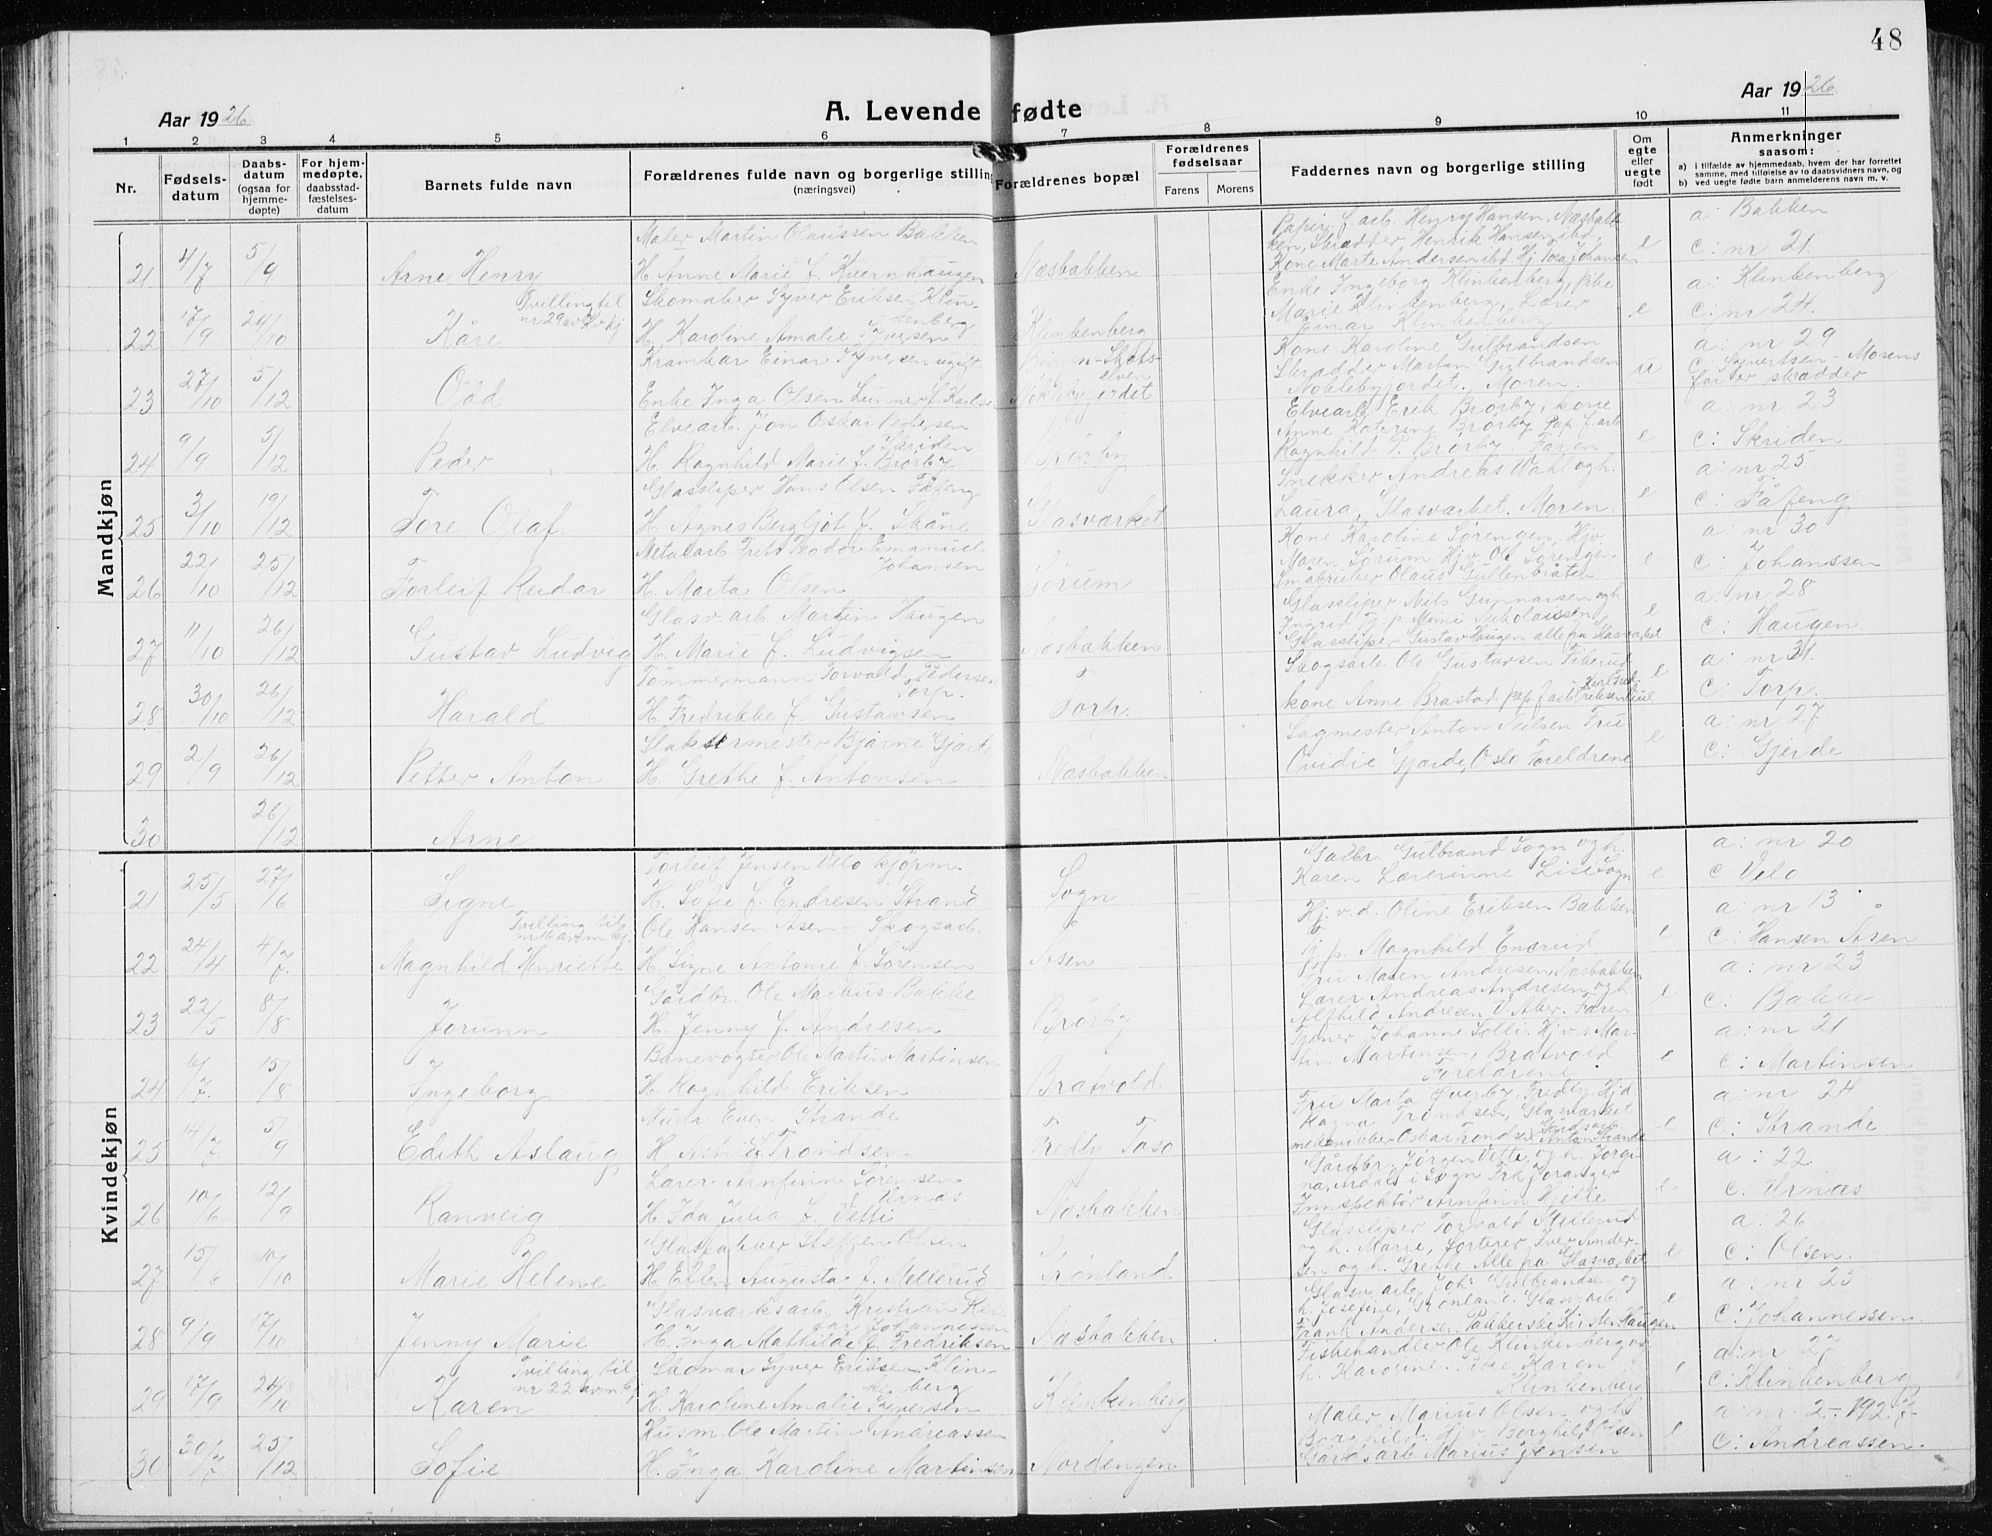 48
Aar 1926
A. Levende fødte
Aar 1926
1 2 3 4 5 6 7 8 9 10 11
Nr.
Fødsels-
datum
Daabs-
datum
(ogsaa for
hjemme-
døpte)
For hjem-
medøpte,
daabsstad-
fæstelses-
datum
Barnets fulde navn
Forældrenes fulde navn og borgerlige stilling
(næringsvei)
Forældrenes bopæl
Forældrenes
fødselsaar
Farens Morens
Faddernes navn og borgerlige stilling
Om
egte
eller
uegte
født
Anmerkninger
saasom:
a) i tilfælde av hjemmedaab, hvem der har forrettet
samme, med tilføielse av to daabsvidners navn, og
b) ved uegte fødte barn anmelderens navn m. v.
Mandkjøn
21 4/7 5/9 Arne Henry
Maler Martin Olaussen Bakken
H. Anne Marie f. Kvernhaugen
Næsbakken
Papirf. arb. Henry Hansen, Næsbak-
ken, Skrædder Henrik Hansen ibd,
Kone Marte Andersen ibd Hj Tora Johansen
e
a: Bakken
c: nr 21
22 17/9 24/10 Kåre
Tvilling til
nr 29 av kv kj
Skomaker Syver Eriksen Klin-
kenberg
H. Karoline Amalie Syversen
Klinkenberg
Enke Ingeborg Klinkenberg, pike
Marie Klinkenberg, Lærer
Einar Klinkenberg
e
a: Klinkenberg
c: nr 24.
23 27/10 5/12 Odd
Krambar Einar Syversen ugift
Enke Inga Olsen Lunner f. Karls
Kone Karoline Gulbrandsen
Skrædder Martin Gulbrandsen
Noklebyjordet. Moren
u
a: nr 29
c: Syvertsen - Morens
far er skrædder
24 9/9 5/12 Peder
Elvearb. Jon Oskar Pedersen
Skriden
H. Ragnhild Marie f. Brörby
Brörby
Elvearb. Erik Brörby, kone
Anne Katerine Brörby Pap. f. arb
Ragnhild P. Brörby. Faren
e
a: nr 23
c: Skriden
25 3/10 19/12 Tore Olaf.
Glassliper Hans Olsen Fåfeng
H. Agnes Bergljot f. Skåne
Glasværket
Snekker Andreas Wahl og h.
Laura, Glasværket. Moren.
e
a: nr 25
c: Fåfeng
26 22/10 25/12 Torleif Reidar
Metalarb. Frits Teodor Emanuel
Johansen
H. Marta Olsen
Sørum
Kone Karoline Sørengen, Hjv.
Maren Sørum Hjv. Ole Sørengen
Småbruker Olaus Gullenbråten
e
a: nr 30
c: Johanssen
27 11/10 26/12 Gustav Ludvig
Glasv. arb. Martin Haugen
H. Marie f. Ludvigsen
Næsbakken
Glassliper Nils Gunnarsen og h
Ingrid G. p. Mimi Nikolaissen
Glassliper Gustav Haugen alle på Glasværket
e
a: nr 28
c: Haugen
28 30/10 26/12 Harald
Tömmermann Torvald Pedersen
Torp.
H. Fredrikke f. Gustavsen
Torp.
Skogsarb. Ole Gustavsen Tiberud
kone Anne Brastad pap. f. arb Karl Fred-
riksen Huul
e
a: nr 31
c: Torp.
29 2/9 26/12 Petter Anton
Slaktermester Bjarne Gjærde
H. Grethe f. Antonsen
Næsbakken
Sagmester Anton Nilsen Frue
Ovidie Gjærde, Oslo Foreldrene
e
a: nr 27
c: Gjerde
30 26/12 Arne
Kvindekjøn
21 25/5 27/6 Signe
Torleif Jensen Velo kjörm.
H. Sofie f. Endresen Strand
Sogn
Gårdbr. Gulbrand Sogn og h.
Karen Lærerinne Lise Sogn
e
a: nr 20
c Velo
22 24/4 4/7. Magnhild Henriette
Tvilling til
nr 16 av m. kj.
Ole Hansen Asen - Skogsarb.
H. Signe Antonie f. Sörensen
Asen
Hj. v. d. Oline Eriksen Bakken
p. Magnhild Endrud
e
a: nr 13
c: Hansen Asen
23 22/5 8/8 Jorunn
Gårdbr. Ole Markus Bakke
H. Jenny f. Andresen
Brörby
Fru Maren Andresen, Næsbakken
Lærer Andreas Andresen, og h
Alfhild Andresen V. Aker. Faren
e
a: nr 23
c: Bakke
24 6/7. 15/8 Ingeborg
Banevogter Ole Martin Martinsen
H. Ragnhild Eriksen
Bratvold
Tjener Johanne Solli. Hj. v. s. Mar-
tin Martinsen, Bratvold
Foreldrene
e
a: nr 21
c: Martinsen
25 14/7 5/9 Edith Aslaug
Murer Even Strande
H. Astrid f. Trondsen
Fru Marta Överby, Fredly, Hjd
Ragna Trondsen, Glasværket
mekaniker Oskar Trondsen Gårdsarb
Anton Strande
e
a: nr 24
c: Strande
26 10/6 12/9 Ranveig
Lærer Arnfinn Sörensen
Urnæs
H. Ida Julia f. Vetti
Næsbakken
Gårdbr. Jörgen Vette og h. Jorgi-
na, Årdal i Sogn Frk Joranger
Innspektör Arnfinn Hjelle
e
a: 22
c. Urnæs
27 15/6 10/10 Marie Helene
Glasmaker Steffen Olsen
H. Ellen Augusta f. Mellerud
Grönland
Glassliper Torvald Mellerud
og h. Marie, Sorterer Iver Ander-
sen og h. Grethe Alle på Glasværket
e
a. 26
c: Olsen.
28 9/9 17/10 Jenny Marie
Glasværksarb. Kristian Rei-
dar Johannessen
H. Inga Mathilde f. Fredriksen
Næsbakken
Glasv. arb. Joh. Gulbrandsen og
h. Josefine, Grönland. Glasv. arb
Frank Andersen Pakkerske Kirsten Haugen
e
a: nr 25
c: Johannessen.
29 17/9 24/10 Karen
Tvilling til
nr 22 av m. kj
Skomar Syver Eriksen Klin-
kenberg
H. Karoline Amalie Syversen
Klinkenberg
Fiskehandler Ole Klinkenberg og
h. Karoline. Pike Karen
Klinkenberg
e
a: nr 27
c: Klinkenberg
30 30/7 25/12 Sofie
Husm. Ole Martin Andreassen
H. Inga Karoline Martinsen
Nordengen
Maler Marius Olsen og h
Borghild. Hjv. Borghild Olsen
Gårdsarb. Marius Jensen
e
a: nr 2 - 1927
c: Andreassen.